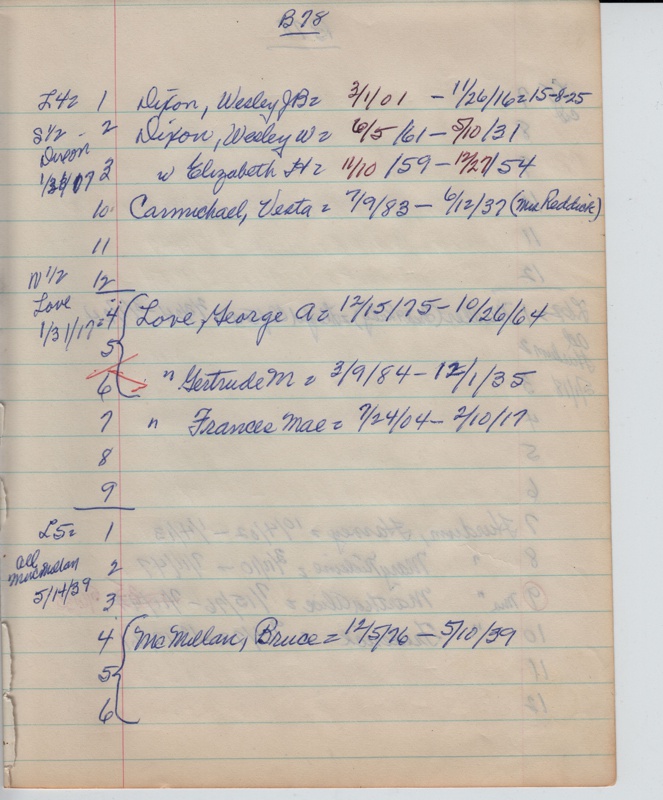 B78
L4= 1 Dixon, Wesley JB= 3/1/01 - 11/26/16=15-8-25
S1/2 - 2 Dixon, Wesley W= 6/5/61- 5/10/31
Dixon
1/31/17 3 w Elizabeth H= 11/10/59- 12/27/54
10 Carmichael, Vesta = 7/9/83 - 6/12/37 (Mrs Reddick)
11
N 1/2 12
Love
1/31/17= 4 Love, George A= 12/15/75- 10/26/64
5
6 " Gertrude M = 3/9/84- 12/1/35
7 " Frances Mae= 7/24/04- 2/10/17
8
9
L5= 1
all
MacMillan 2
5/14/39
3
4 McMillan, Bruce= 12/5/76 - 5/10/39
5
6